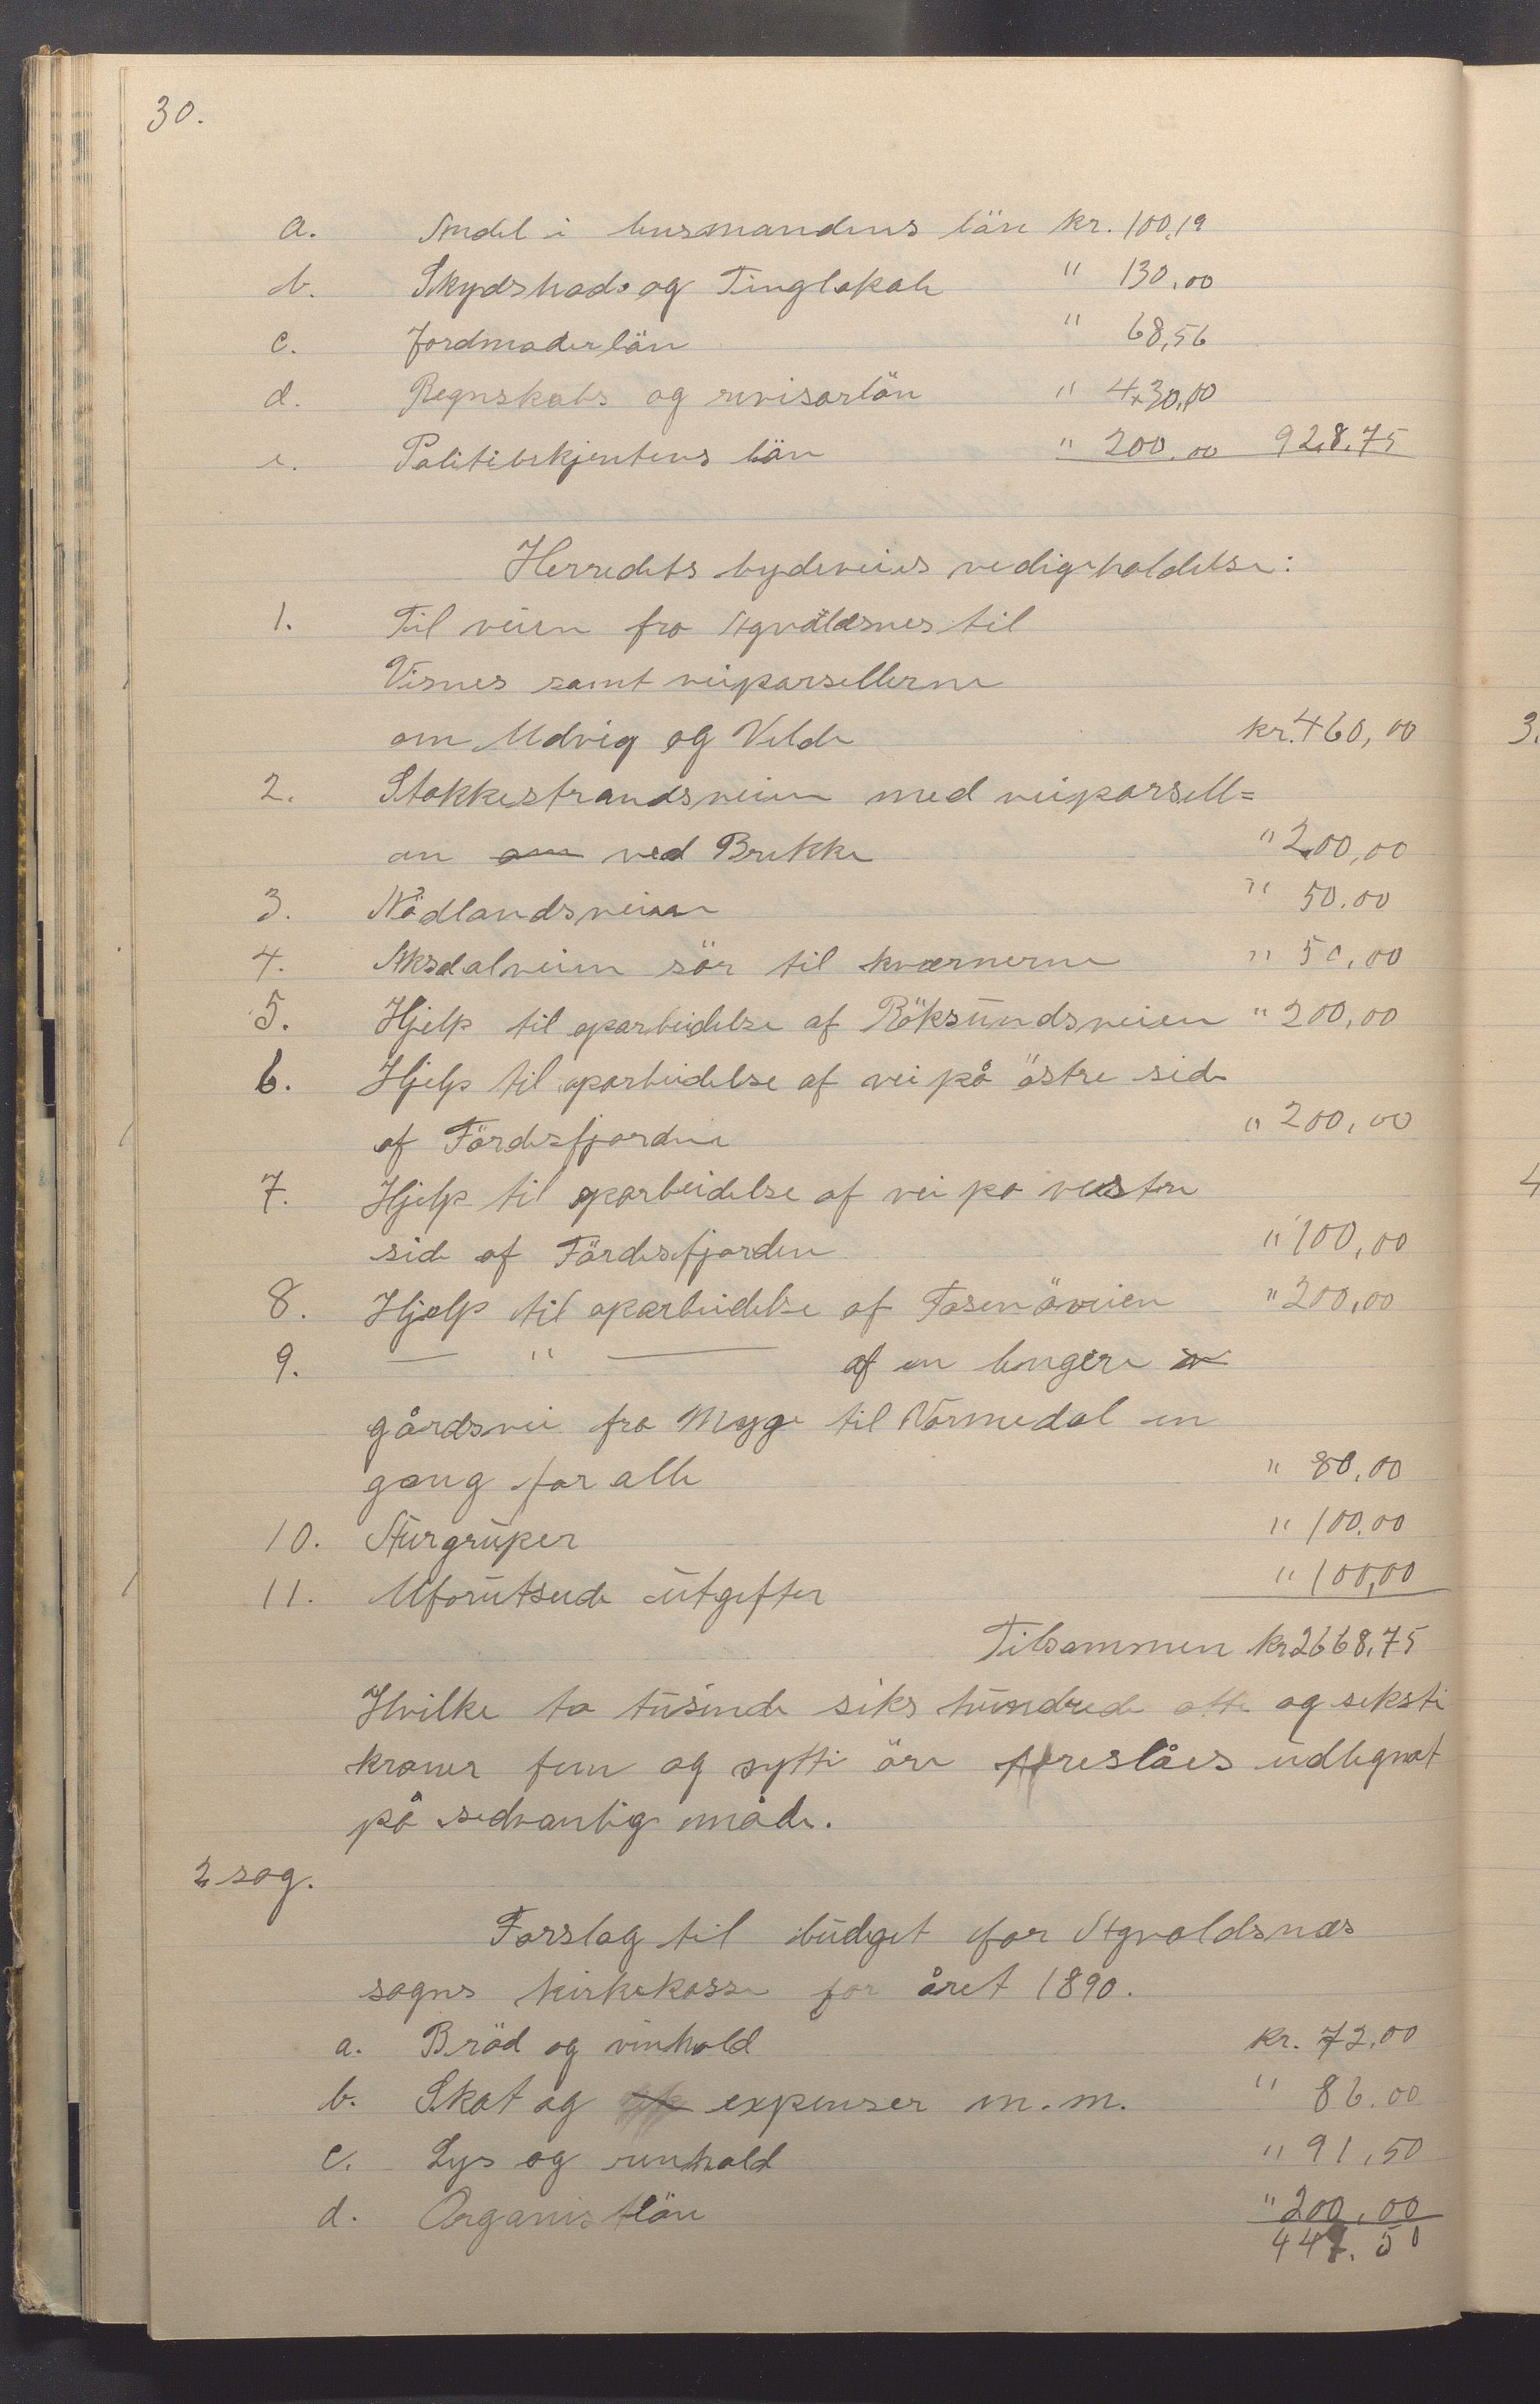 30.
a. Andel i lensmandens lön kr. 100,19
b. Skydshads og Tinglokale " 130,00
c. Jordmoderlön " 68,56
d. Regnskabs og revisorlön " 430,00
e. Politibetjentens lön " 200,00 928,75
Herredets bydeveies vedligeholdelse:
1. Til veien fra Agvaldsnes til
Visnes samt veiparsellerne
om Udvig og Velde kr. 460,00
2. Stokkestrandsveien med veiparsell=
en om ved Brekke " 200,00
3. Nådlandsveien " 50,00
4. Aksdalveien sör til kværnerne " 50,00
5. Hjelp til oparbeidelse af Röksundsveien " 200,00
6. Hjelp til oparbeidelse af vei på östre side
af Fördesfjorden " 200,00
7. Hjelp til oparbeidelse af vei på vestre
side af Fördesfjorden " 100,00
8. Hjelp til oparbeidelse af Fosenöveien " 200,00
9. — " — af en lengere
gårdsvei fra Myge til Vormedal en
gang for alle " 80,00
10. Sturgruper " 100,00
11. Uforutseede utgifter " 100,00
Tilsammen kr 2668,75
Hvilke to tusinde seks hundrede otte og seksti
kroner fem og sytti öre foreslåes udlignet
på sedvanlig måde.
2 sag.
Forslag til budget for Agvaldsnæs
sogns kirkekasse for året 1890.
a. Bröd og vinhold kr. 72,00
b. Skat og expenser m.m. " 86,00
c. Lys og renhold " 91,50
d. Organistlön " 200,00
447.50
3.
4